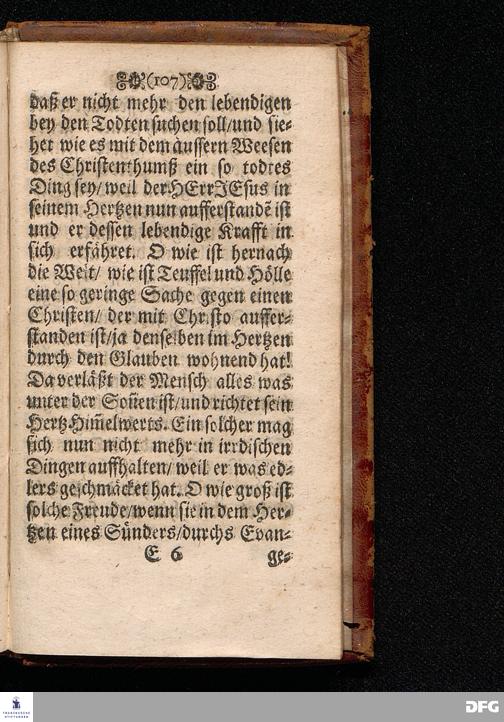 (107)
daß er nicht mehr den lebendigen
bey den Todten suchen soll/ und sie-
het wie es mit dem äussern Weesen
des Christenthumß ein so todtes
Ding sey/ weil der HErr JEsus in
seinem Hertzen nun aufferstandē ist
und er dessen lebendige Krafft in
sich erfähret. O wie ist hernach
die Welt/ wie ist Teuffel und Hölle
eine so geringe Sache gegen einen
Christen/ der mit Christo auffer-
standen ist/ ja denselben im Hertzen
durch den Glauben wohnend hat!
Da verläßt der Mensch alles was
unter der Soñen ist/ und richtet sein
Hertz Him̃elwerts. Ein solcher mag
sich nun nicht mehr in irrdischen
Dingen auffhalten/ weil er was ed-
lers geschmäcket hat. O wie groß ist
solche Freude/ wenn sie in dem Her-
tzen eines Sünders/ durchs Evan-
E 6 ge-
FRANCKESCHE STIFTUNGEN
DFG